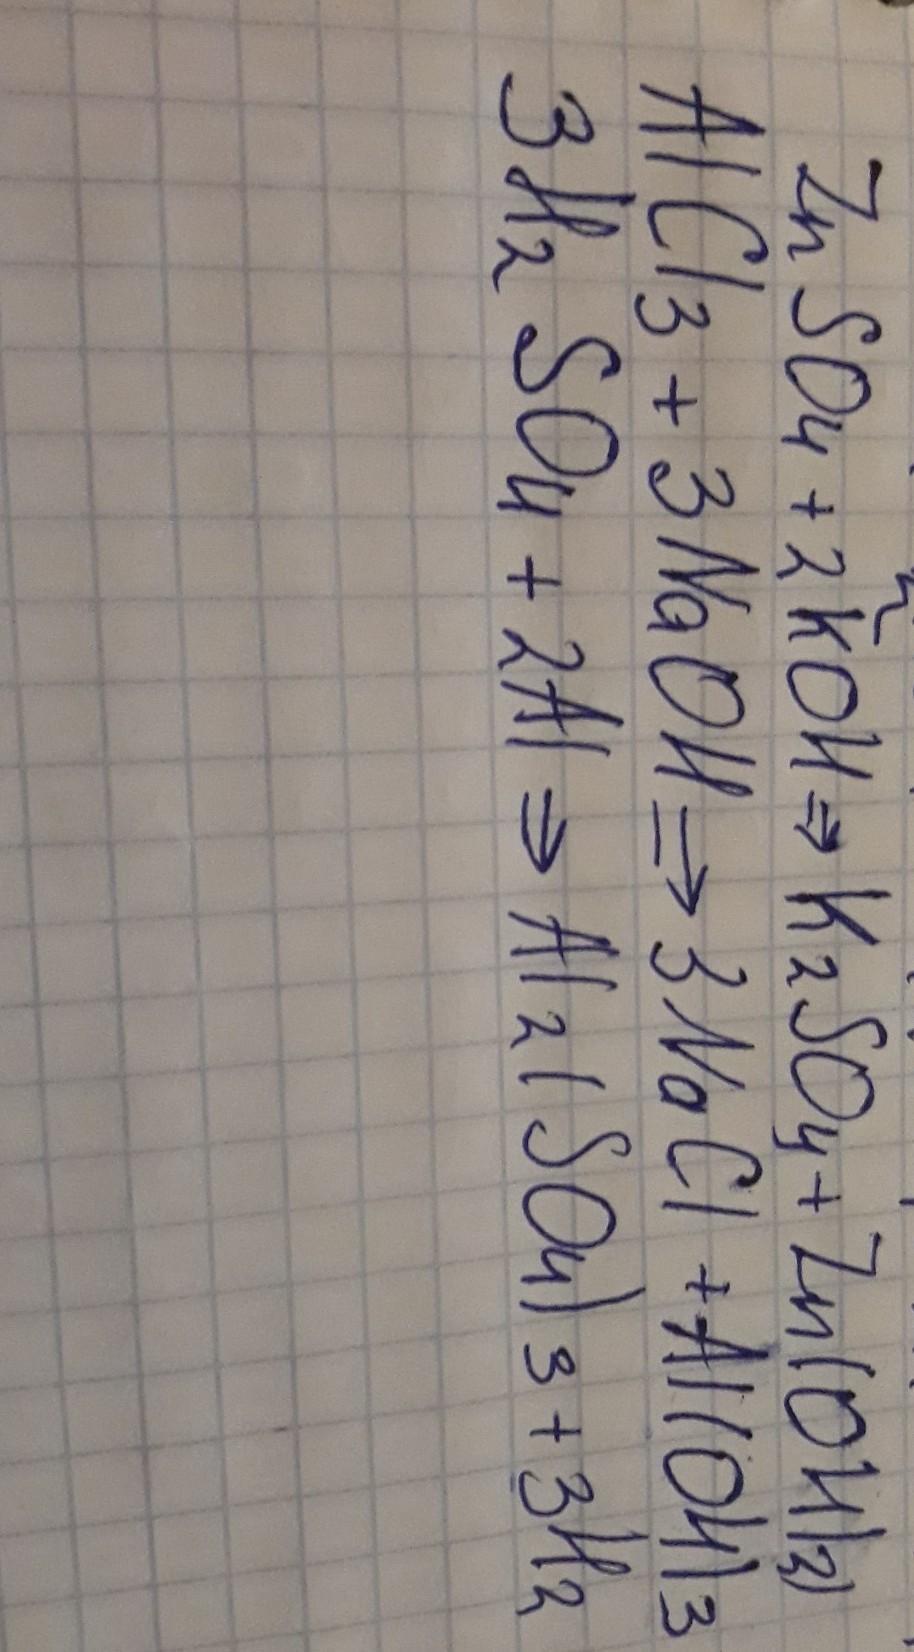 ZnSO4 + 2KOH ⇒ K2SO4 + Zn(OH)2)
AlCl3 + 3NaOH ⇒ 3NaCl + Al(OH)3
3H2SO4 + 2Al ⇒ Al2(SO4)3 + 3H2